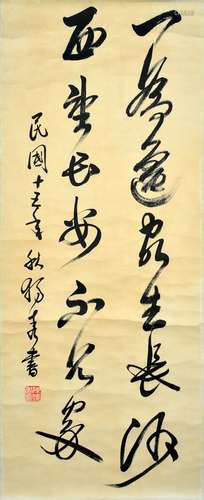 一為遷客去長沙
西望長安不見家
民國十五年秋獨秀書